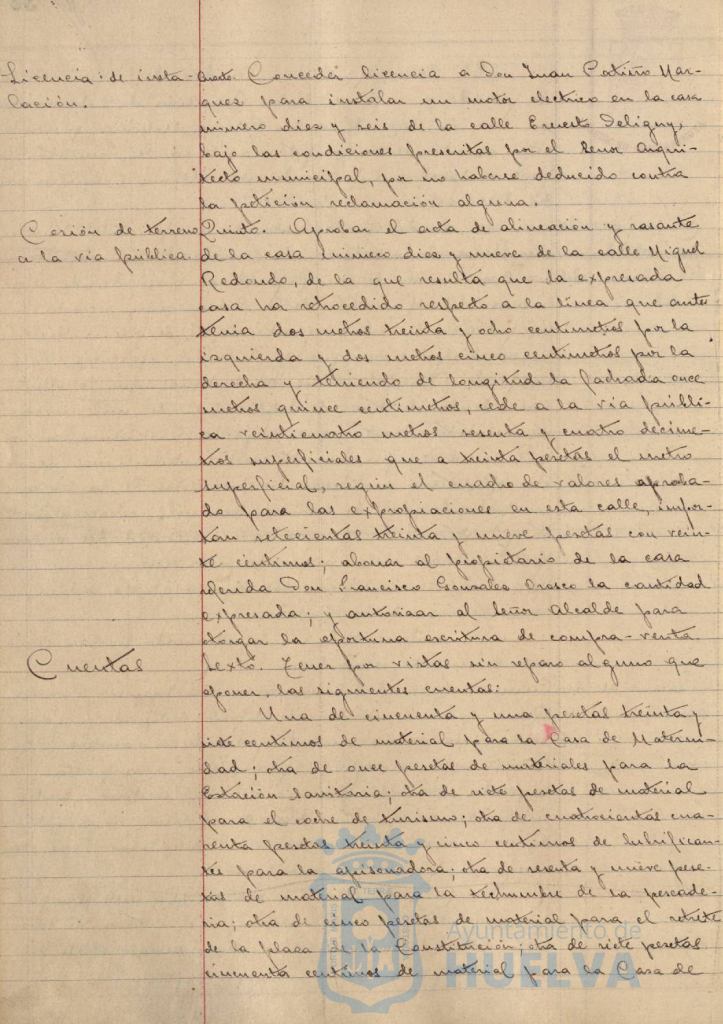 Licencia de insta-
lación.
Cuarto. Conceder licencia a Don Juan Patiño Mar-
quez para instalar un motor electrico en la casa
número diez y seis de la calle Ernesto Deligny,
bajo las condiciones prescritas por el Señor Arqui-
tecto municipal, por no haberse deducido contra
la petición reclamación alguna.
Cesión de terreno
a la via pública.
Quinto. Aprobar el acta de alineación y rasante
de la casa número diez y nueve de la calle Miguel
Redondo, de la que resulta que la expresada
casa ha retrocedido respecto a la línea que antes
tenia dos metros treinta y ocho centimetros por la
izquierda y dos metros cinco centimetros por la
derecha y teniendo de longitud la fachada once
metros quince centimetros, cede a la via públi-
ca veinticuatro metros sesenta y cuatro decime-
tros superficiales que a treinta pesetas el metro
superficial, según el cuadro de valores aproba-
do para las expropiaciones en esta calle, impor-
tan setecientas treinta y nueve pesetas con vein-
te centimos; abonar al propietario de la casa
referida Don Francisco Gonzalez Orosco la cantidad
expresada; y autorizar al Señor Alcalde para
otorgar la oportuna escritura de compra-venta
Cuentas
Sexto. Tener por vistas sin reparo alguno que
oponer, las siguientes cuentas:
Una de cincuenta y una pesetas treinta y
siete centimos de material para la Casa de Materni-
dad; otra de once pesetas de materiales para la
Estación Sanitaria; otra de siete pesetas de material
para el coche de turismo; otra de cuatrocientas cua-
renta pesetas treinta y cinco centimos de lubrifican-
tes para la apisonadora; otra de sesenta y nueve pese-
tas de material para la techumbre de la pescade-
ria; otra de cinco pesetas de material para el retrete
de la plaza de la Constitución; otra de siete pesetas
cincuenta centimos de material para la Casa de
Ayuntamiento de
HUELVA